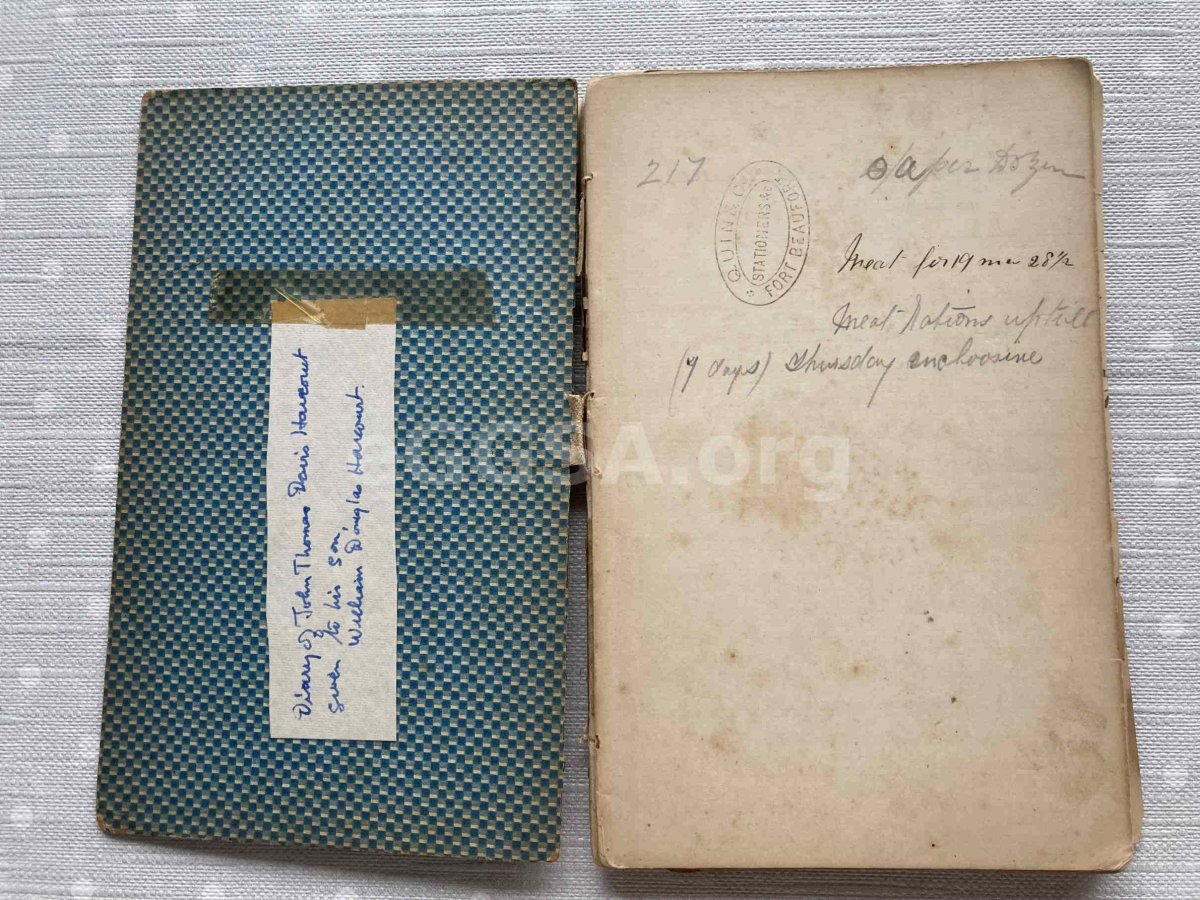 Diary of John Thomas Davis Harcourt
Given to his son,
William Douglas Harcourt.
217
QUIN & Co
STATIONERS &c
FORT BEAUFORT
per Dozen
Meat for 19 men 28 1/2
Meat Rations up till
(7 days) Thursday incloosive
eGGSA.org